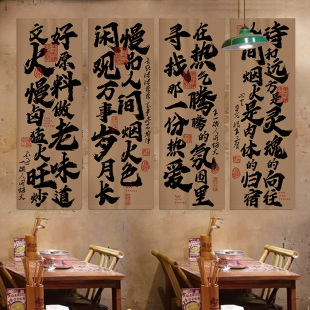 诗和远方是灵魂的向往
人间烟火是肉体的归宿
在热气腾腾的氛围里
寻找那一份热爱
慢品人间烟火色
闲观万事岁月长
好原料做老味道
文火慢卤猛火旺炒